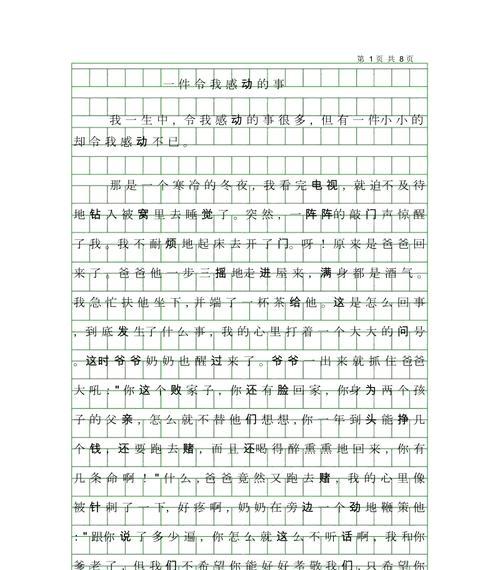 第 1 页 共 8 页
一件令我感动的事
我一生中,令我感动的事很多,但有一件小小的
却令我感动不已。
那是一个寒冷的冬夜,我看完电视,就迫不及待
地钻入被窝里去睡觉了。突然,一阵阵的敲门声惊醒
了我。我不耐烦地起床去开了门。呀!原来是爸爸回
来了。爸爸他一步三摇地走进屋来,满身都是酒气。
我急忙扶他坐下,并端了一杯茶给他。这是怎么回事
,到底发生了什么事,我的心里打着一个大大的问号
。这时爷爷奶奶也醒过来了。爷爷一出来就抓住爸爸
大吼:"你这个败家子,你还有脸回家,你身为两个孩
子的父亲,怎么就不替他们想想,你一年到头能挣几
个钱,还要跑去赌,而且还喝得醉熏熏地回来,你有
几条命啊!"什么,爸爸竟然又跑去赌,我的心里像
被针刺了一下,好疼啊,奶奶在旁边一个劲地鞭策他
:"跟你说了多少遍,你怎么就这么不听话啊,我和你
爹老了,但我们不希望你能好好孝敬我们,只希望你